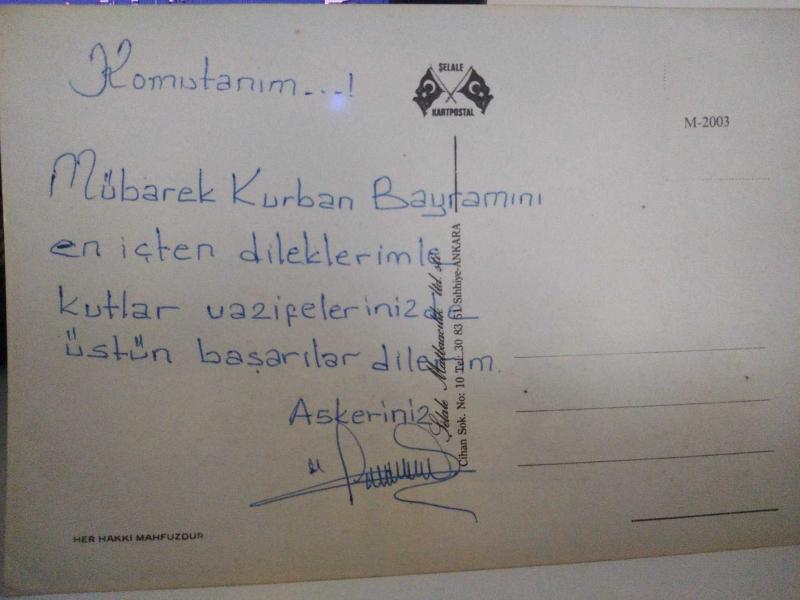 Komutanım...!
ŞELALE
KARTPOSTAL
M-2003
Mübarek Kurban Bayramını
en içten dileklerimle
kutlar vazifelerinizde
üstün başarılar dilerim.
Askeriniz
Şelale Matbaacılık Ltd. Şti.
Cihan Sok. No: 10 Tel: 30 83 51 Sıhhiye-ANKARA
HER HAKKI MAHFUZDUR